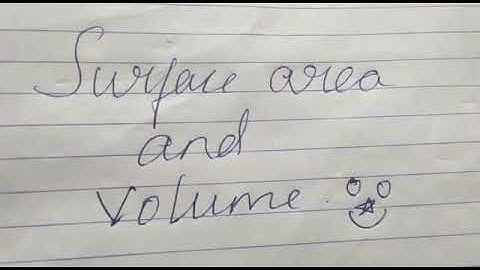 Surface area
and
Volume.